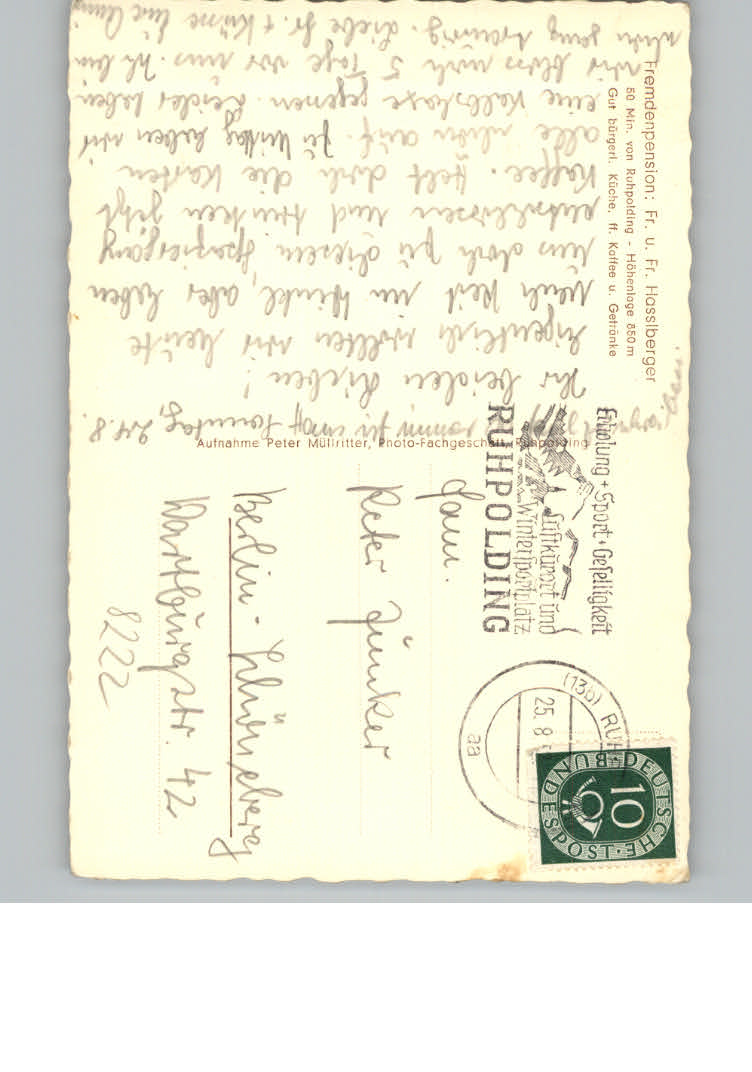 Fremdenpension: Fr. u. Fr. Hasslberger
50 Min. von Ruhpolding - Höhenlage 850 m
Gut bürgerl. Küche, ff. Kaffee u. Getränke
Aufnahme Peter Müllritter, Photo-Fachgeschäft, Ruhpolding
Sonntag, 24.8.
Ihr beiden Lieben!
Eigentlich wollten wir heute
nach Reit im Winkl, aber haben
uns doch zu diesem Spaziergang
entschlossen und trinken jetzt
Kaffee. Hebt doch die Karten
alle schon auf. Zu Mittag haben wir
eine Kalbshaxe gegessen. Leider haben
wir bloss noch 5 Tage vor uns. Ich bin
schon ganz traurig. Liebe Gr. + Küsse Eure
Erholung + Sport + Geselligkeit
Luftkurort und
Wintersportplatz
RUHPOLDING
(13b) RUHP
25.8.5
aa
DEUTSCHE
BUNDESPOST
10
Fam.
Peter Junker
Berlin - Schöneberg
Wartburgstr. 42
8222